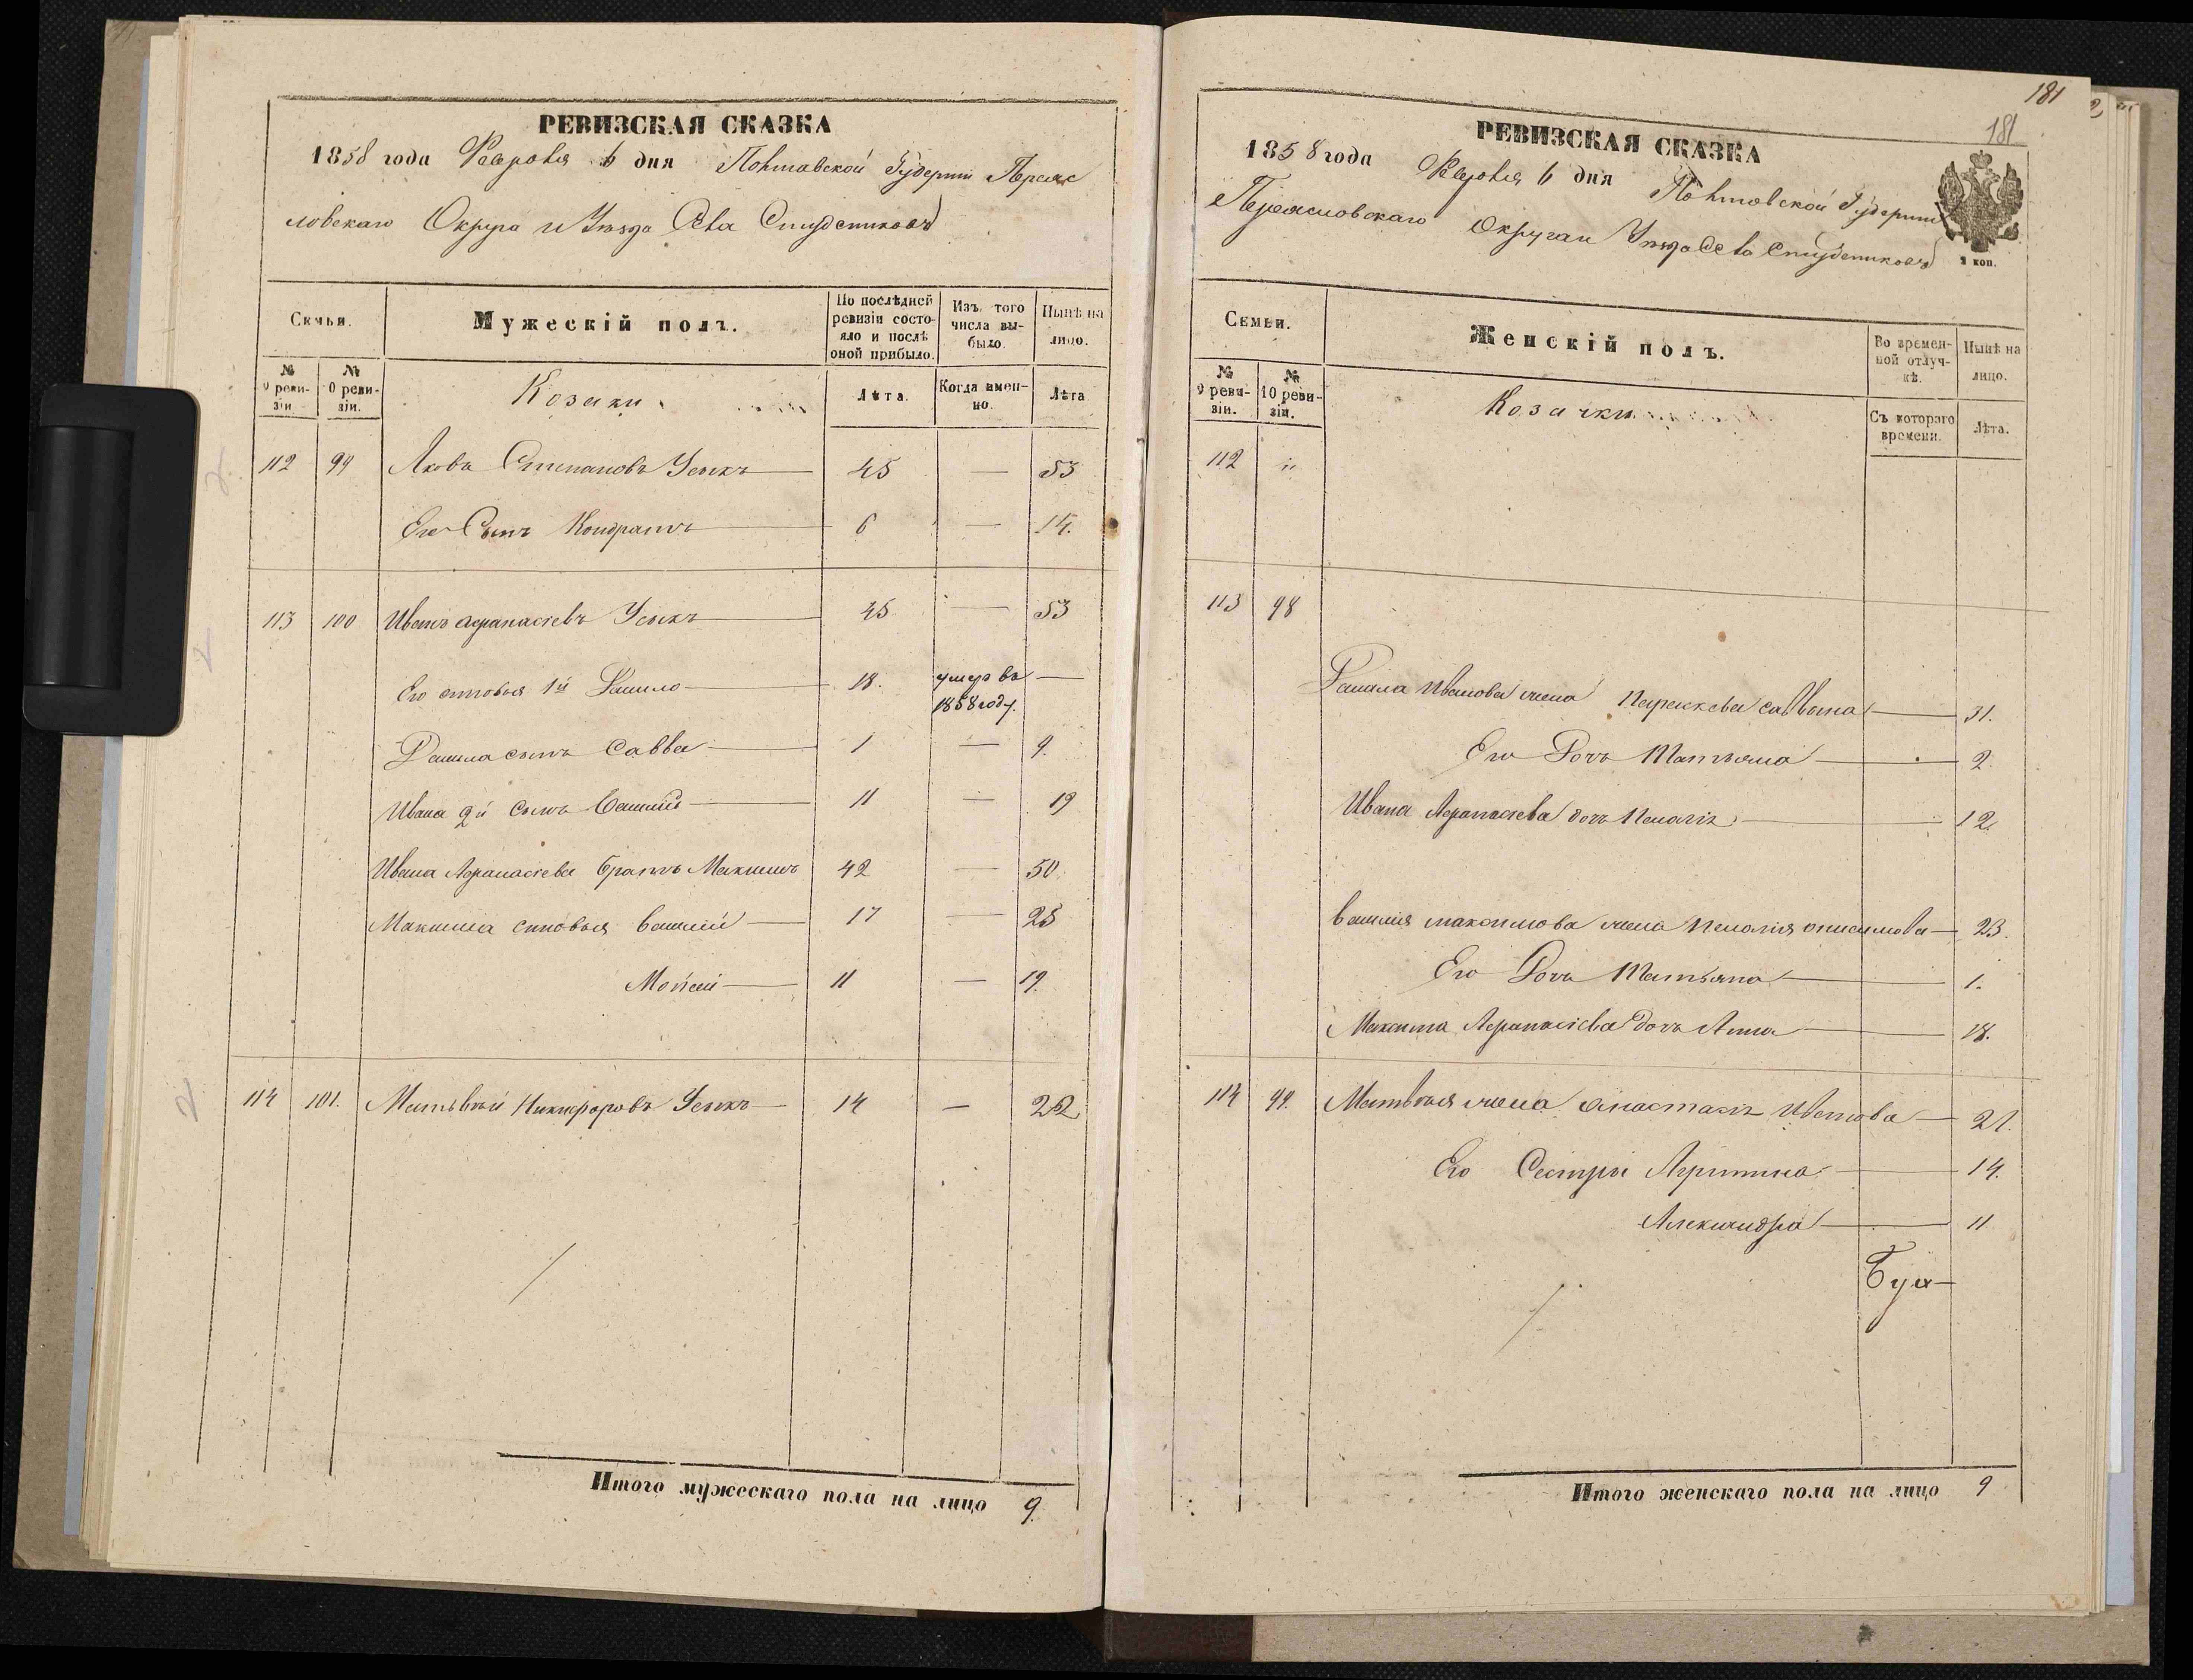 РЕВИЗСКАЯ СКАЗКА
1858 года Февраля 6 дня Полтавской Губернии Переяс
ловскаго Округа и Уезда Села Студениковъ
Семьи.
Мужескій полъ.
По послѣдней ревизіи состояло и послѣ оной прибыло.
Изъ того числа выбыло.
Нынѣ на лицо.
№ 9 ревизіи.
№ 10 ревизіи.
Козаки
Лѣта.
Когда именно.
Лѣта
112 99 Яковъ Степановъ Усыкъ 45 — 53
Его Сынъ Кондратъ 6 — 14.
113 100 Иванъ Афанасіевъ Усыкъ 45 — 53
Его сыновья 1й Данило 18. умеръ въ 1858 году. —
Данила сынъ Савва 1 — 9.
Ивана 2й сынъ Василій 11 — 19
Ивана Афанасіева братъ Максимъ 42 — 50.
Максима сыновья Василій 17 — 25
Мойсей 11 — 19.
114 101. Матвѣй Никифоровъ Усыкъ 14 — 22
Итого мужескаго пола на лицо 9.
181
181
РЕВИЗСКАЯ СКАЗКА
1858 года Февраля 6 дня Полтавской Губернии
Переясловскаго Округа и Уезда Села Студениковъ
коп.
Семьи.
Женскій полъ.
Во временной отлучкѣ.
Нынѣ на лицо.
№ 9 ревизіи.
№ 10 ревизіи.
Козачки
Съ котораго времени.
Лѣта.
112 "
113 98
Данила Иванова жена Параскева Саввина 31.
Его Дочь Татьяна 2.
Ивана Афанасіева дочь Пелагія 12
Василія Максимова жена Пелагія Онисимова 23.
Его Дочь Татьяна 1.
Максима Афанасіева дочь Анна 18.
114 99. Матвѣя жена Анастасія Иванова 21.
Его Сестры 14.
Александра 11
Итого женскаго пола на лицо 9